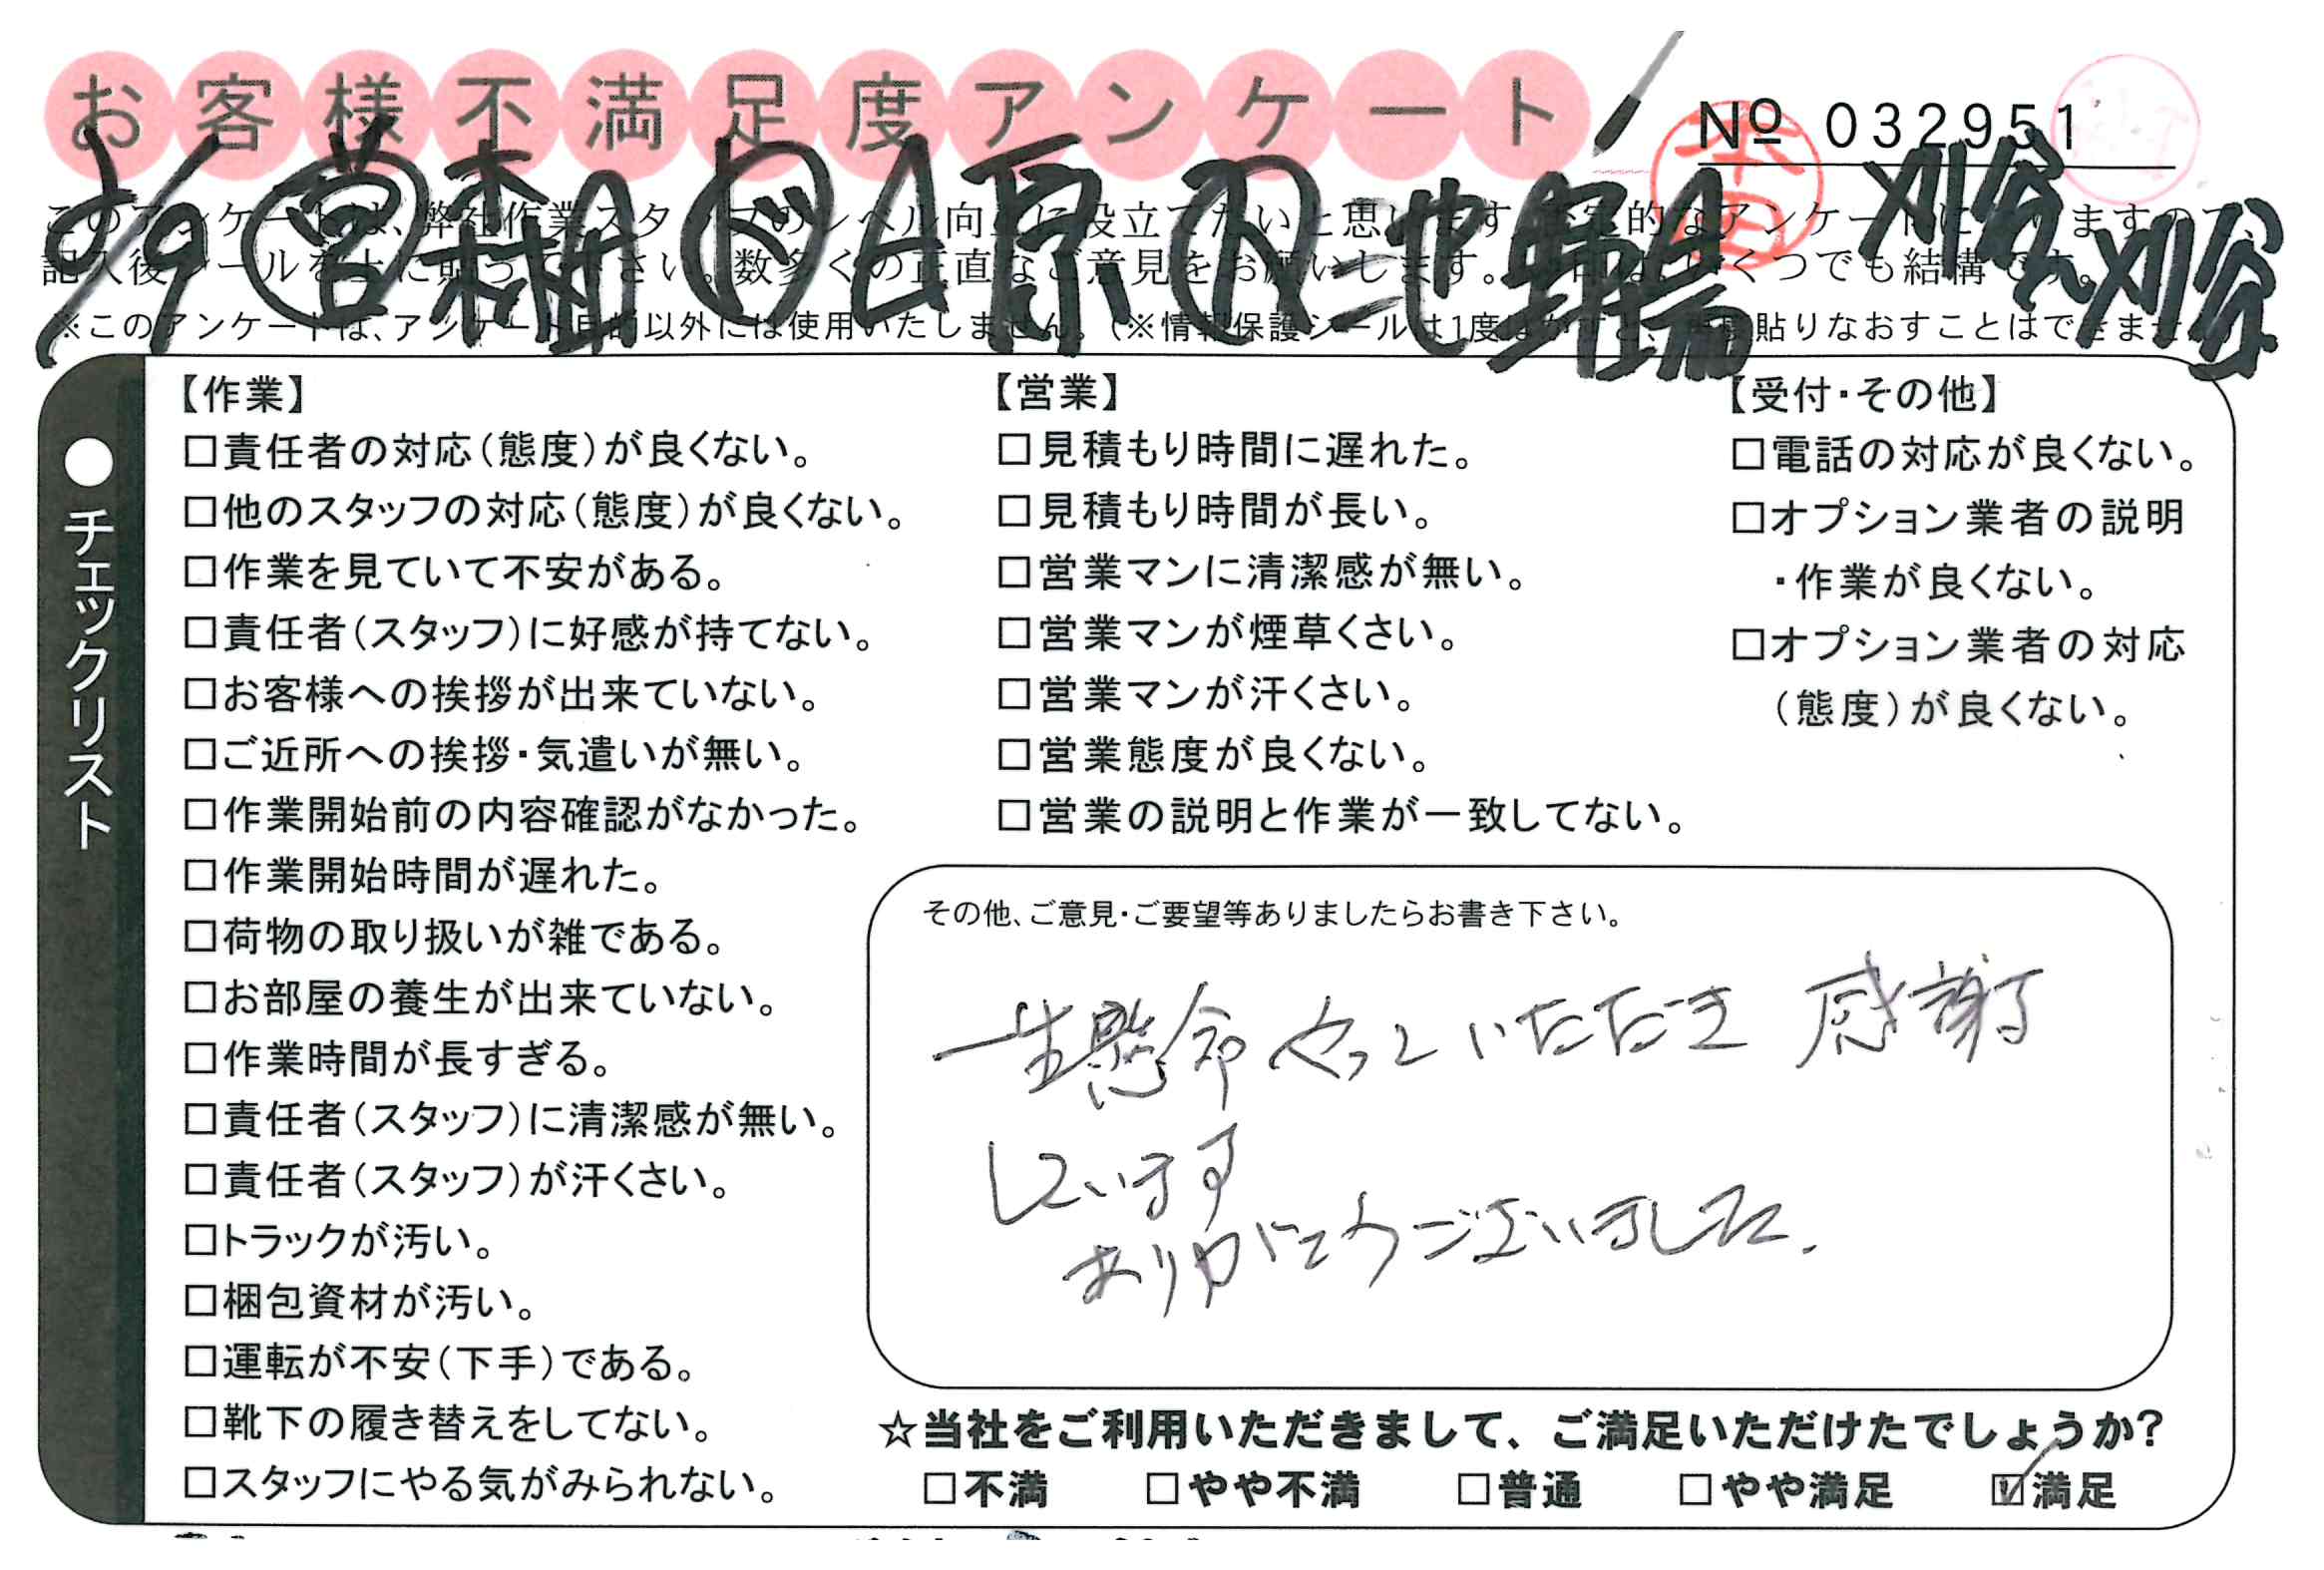 お客様不満足度アンケート
№ 032951
本田
刈谷〜刈谷
※このアンケートは、アンケート目的以外には使用いたしません。(※情報保護シールは1度はがすと、貼りなおすことはできません
●チェックリスト
【作業】
□責任者の対応(態度)が良くない。
□他のスタッフの対応(態度)が良くない。
□作業を見ていて不安がある。
□責任者(スタッフ)に好感が持てない。
□お客様への挨拶が出来ていない。
□ご近所への挨拶・気遣いが無い。
□作業開始前の内容確認がなかった。
□作業開始時間が遅れた。
□荷物の取り扱いが雑である。
□お部屋の養生が出来ていない。
□作業時間が長すぎる。
□責任者(スタッフ)に清潔感が無い。
□責任者(スタッフ)が汗くさい。
□トラックが汚い。
□梱包資材が汚い。
□運転が不安(下手)である。
□靴下の履き替えをしてない。
□スタッフにやる気がみられない。
【営業】
□見積もり時間に遅れた。
□見積もり時間が長い。
□営業マンに清潔感が無い。
□営業マンが煙草くさい。
□営業マンが汗くさい。
□営業態度が良くない。
□営業の説明と作業が一致してない。
【受付・その他】
□電話の対応が良くない。
□オプション業者の説明
・作業が良くない。
□オプション業者の対応
(態度)が良くない。
その他、ご意見・ご要望等ありましたらお書き下さい。
一生懸命やっていただき 感謝
しています
ありがとうございました.
☆当社をご利用いただきまして、ご満足いただけたでしょうか?
□不満 □やや不満 □普通 □やや満足 ☑満足